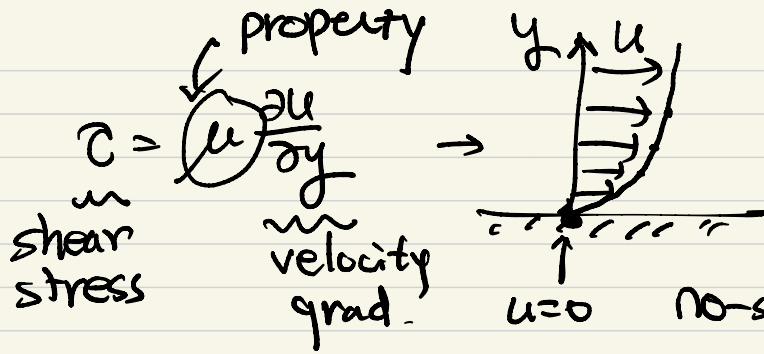 property
y u
τ = μ ∂u/∂y →
shear
stress
velocity
grad.
u=0 no-s